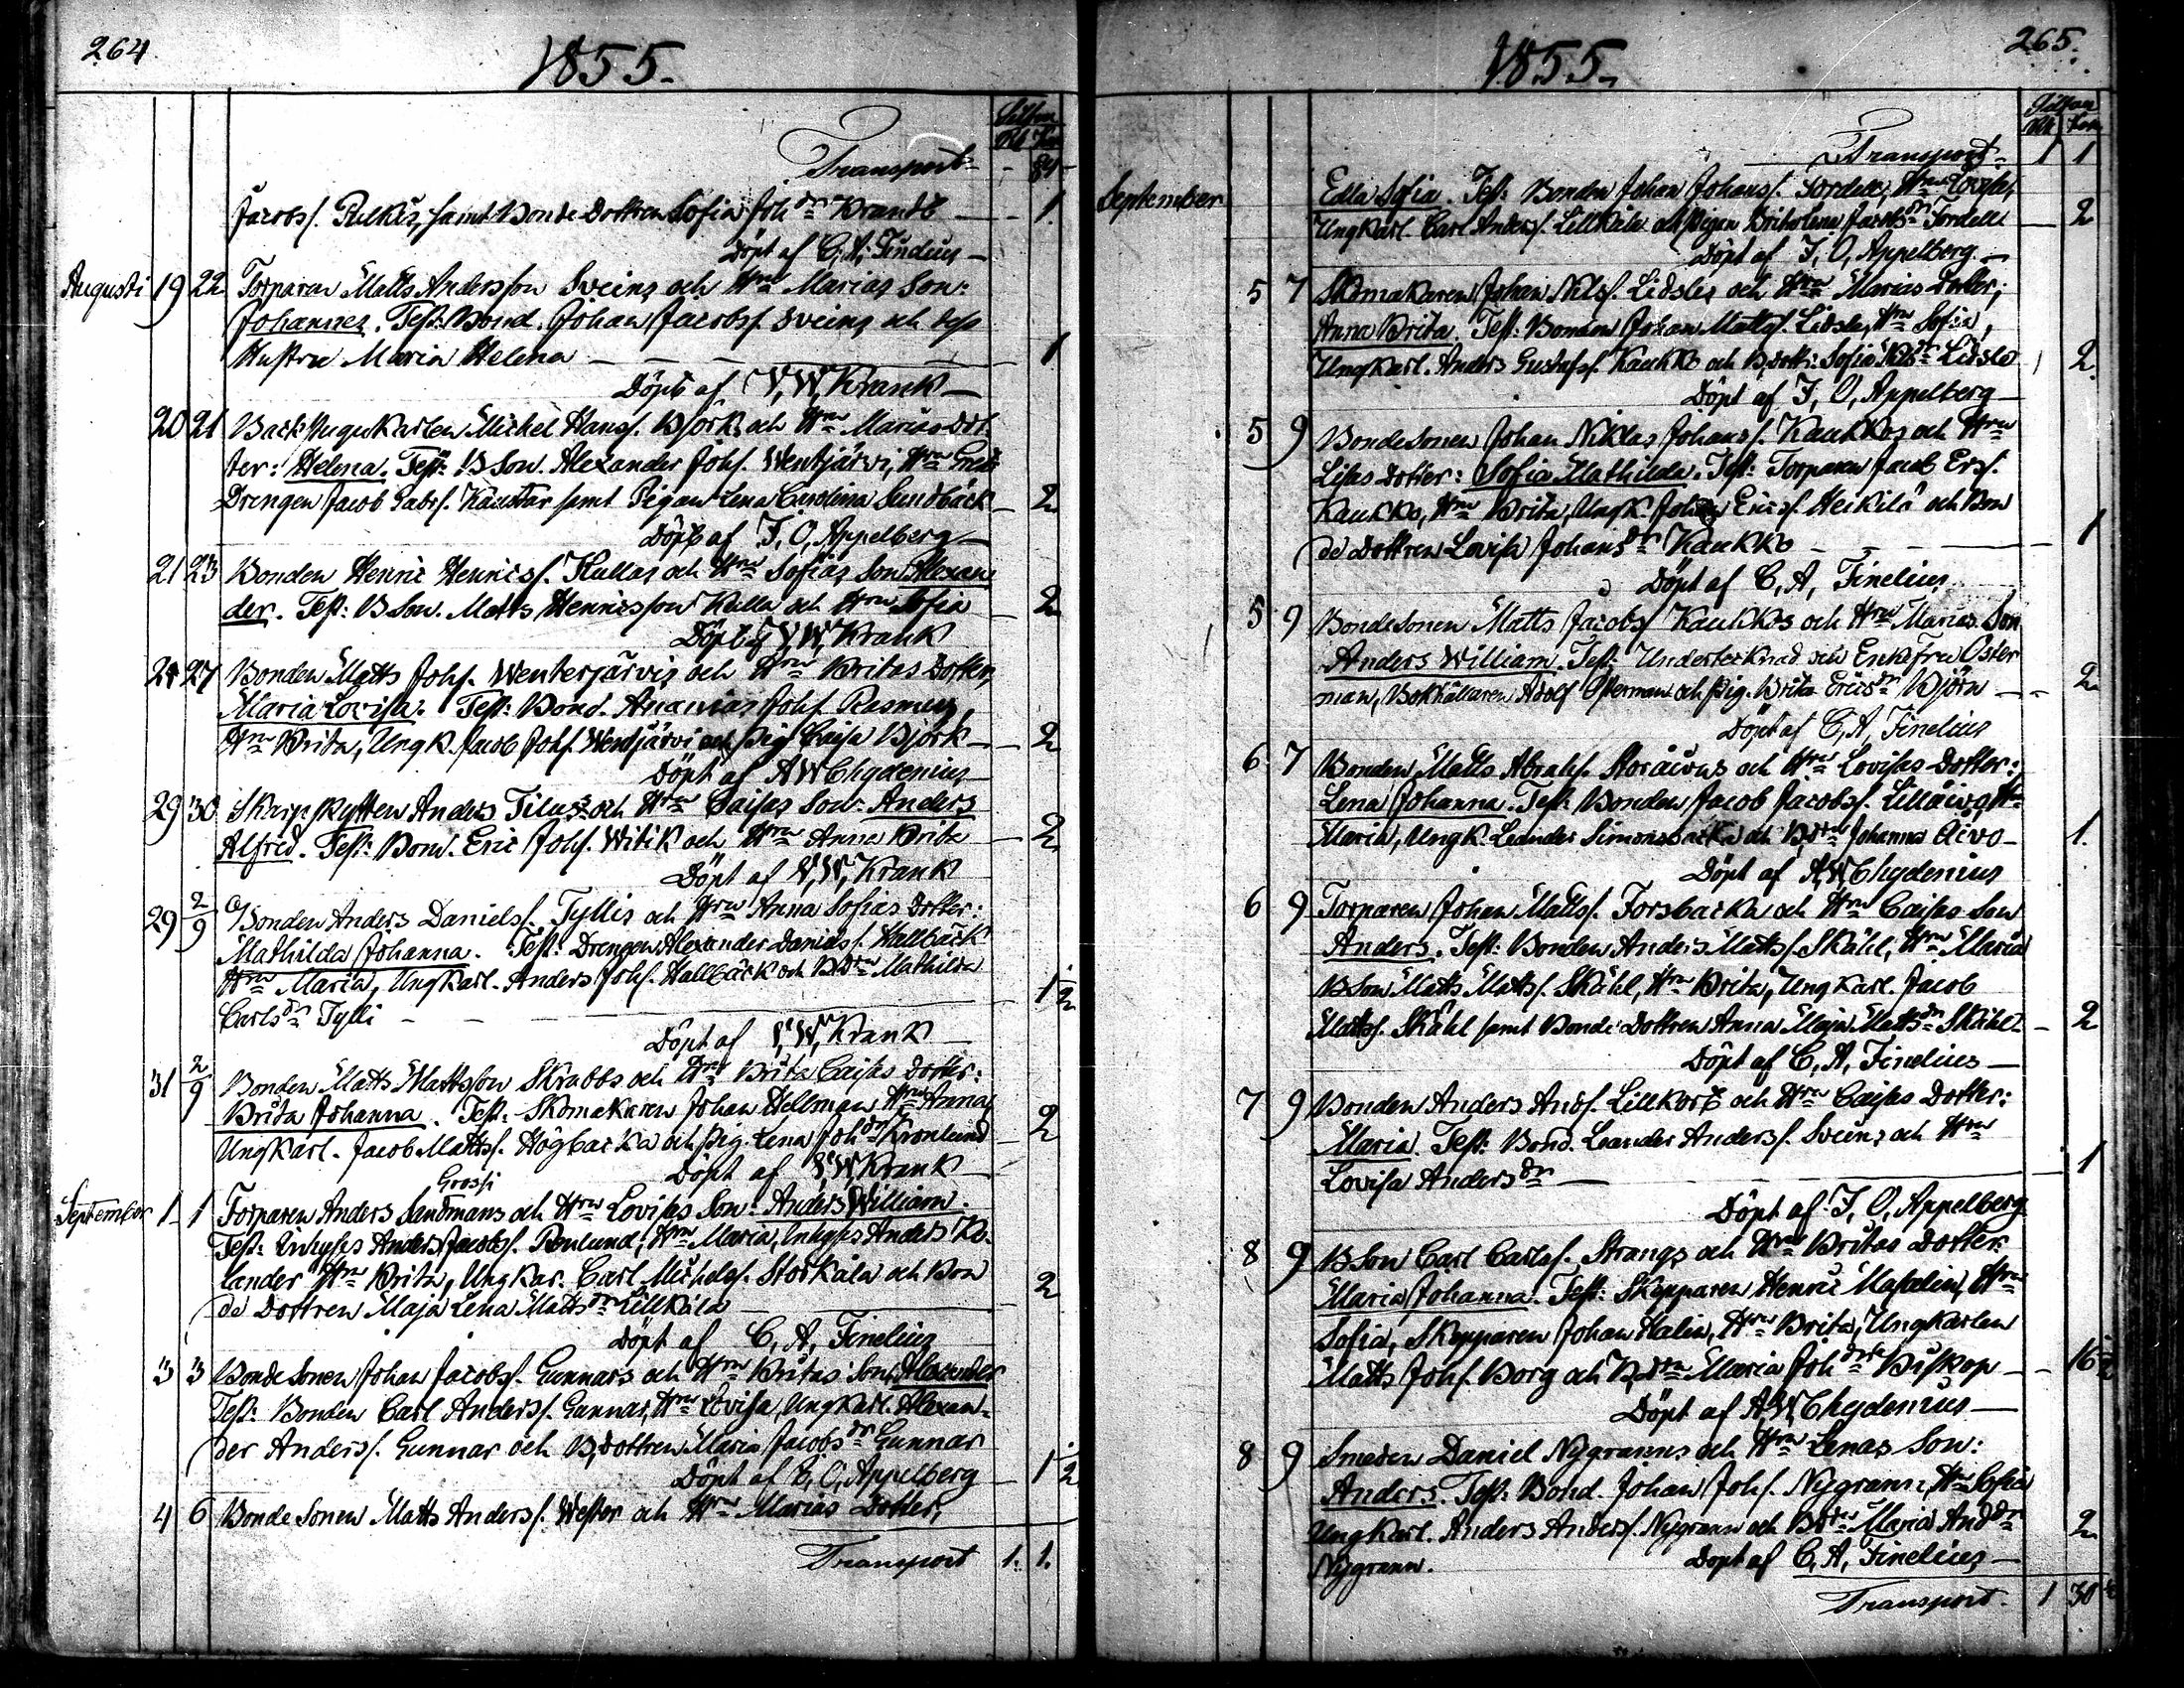 264
1855.
Transport 84
Jacobs. samt Bonde Dottren Sofia Joh dr Brandt 1
Döpt af C, A, Finelius
Augusti 19 22 Torparen Matts Andersson Sveins och Hrus Marias Son:
Johannes. Test: Bond. Johan Jacobs. Sveins och dess
Hustru Maria Helena 1
Döpt af V, W, Krank
20 21 Michel Hans. Björk och Hrus Marias Dot
ter: Helena. Test: B Son. Alexander Johs. Wentjärvi, Hru Greta
Drengen Jacob Gabrs. samt Pigan Lena Carolina Sundbäck 2
Döpt af F, O, Appelberg
21 23 Bonden Henric Henrics. Kullas och Hrus Sofias Son Alexan
der. Test: B Son. Matts Henricsson Kulla och Hru Sofia 2
Döpt af V, W, Krank
27 Bonden Matts Johs. Wenterjärvis och Hrus Britas Dotter,
Maria Lovisa. Test: Bond. Ananias Johs. Rasmus,
Hru Brita, Ungk. Jacob Johs. Wentjärvi och Pig. Caisa Björk 2
Döpt af A W Chydenius
29 30 Skarpskytten Anders Tilus och Hrus Caisas Son: Anders
Alfred. Test: Bond. Eric Johs. Witik och Hru Anna Brita 2
Döpt af V, W, Krank
29 2/9 Bonden Anders Daniels. Tyllis och Hrus Anna Sofias Dotter:
Mathilda Johanna. Test: Drengen Alexander Daniels. Hallbäck
Hru Maria, Ungkarl. Anders Johs. Hallbäck och B Dtr Mathilda
Carls dr Tylli 1 1/2
Döpt af V, W, Krank
31 2/9 Bonden Matts Mattsson Skrabbs och Hrus Brita Caisas Dotter:
Brita Johanna. Test: Skomakaren Johan Hellman Hru Anna,
Ungkarl. Jacob Matts. Högbacka och Pig. Lena Joh dr Kronlund 2
Döpt af V, W, Krank
Grossi
September 1 1 Torparen Anders Sandmans och Hrus Lovisas Son: Anders William.
Test: Inhyses Anders Jacobs. Rönlund, Hru Maria, Inhyses Anders Ko
lander Hru Brita, Ungkar. Carl Michels. Storkåla och Bon
de Dottren Maja Lena Matts dr Lillkåla 2
Döpt af C, A, Finelius
3 3 Bonde Sonen Johan Jacobs. Gunnars och Hrus Britas Son, Alexander
Test: Bonden Carl Anders. Gunnar, Hru Lovisa, Ungkarl. Alexan-
der Anders. Gunnar och B, dottren Maria Jacobs dr Gunnar
Döpt af F, O, Appelberg 1 1/2
4 6 Bonde Sonen Matts Anders. Wester och Hrus Marias Dotter,
Transport 1. 1.
265.
1855.
Transport 1 1
September Edla Sofia. Test: Bonden Johan Johans. Tordell, Hru Lovisa,
Ungkarl. Carl Anders. Lillkåla och Pigan Brita Lena Jacobs dr Tordell 2
Döpt af F, O, Appelberg
5 7 Skomakaren Johan Nils. Lidsles och Hrus Marias Dotter;
Anna Brita. Test: Bonden Johan Matts. Lidsle, Hru Sofia,
Ungkarl. Anders Gustafs. Kaukko och B,dott: Sofia Nils dr Lidsle 2.
Döpt af F, O, Appelberg
5 9 Bondesonen Johan Niklas Johans. Kaukkos och Hrus
Lisas Dotter: Sofia Mathilda. Test: Torparen Jacob Ers.
Kaukko, Hru Brita, Ungk. Johan Erics. Heikilä och Bon
de Dottren Lovisa Johans dr Kaukko 1
Döpt af C, A, Finelius
5 9 Bondesonen Matts Jacobs. Kaukkos och Hrus Marias Son
Anders William. Test: Undertecknad och Enkefru Öster
man, Bokhållaren Adolf Österman och Pig. Brita Erics dr Björn 2
Döpt af C, A, Finelius
6 7 Bonden Matts Abrahs. Storåivus och Hrus Lovisas Dotter:
Lena Johanna. Test: Bonden Jacob Jacobs. Lillåivo, Hru
Maria, Ungk. Leander Simonsbacka och B Dtr Johanna Åivo 1.
Döpt af A, W Chydenius
6 9 Torparen Johan Matts. Forsbacka och Hrus Caisas Son
Anders. Test: Bonden Anders Matts. Skåhl, Hru Maria
B Son Matts Matts. Skåhl, Hru Brita, Ungkarl. Jacob
Matts. Skåhl samt Bonde Dottren Anna Maja Matts dr Skåhl 2
Döpt af C, A, Finelius
7 9 Bonden Anders Ands. Lillkorts och Hrus Caisas Dotter:
Maria. Test: Bond. Leander Anders. Sveins och Hru
Lovisa Anders dr 1
Döpt af F, O, Appelberg.
8 9 B Son Carl Carls. Strangs och Hrus Britas Dotter:
Maria Johanna. Test: Skepparen Henric Masalin, Hru
Sofia, Skepparen Johan Halin, Hru Brita, Ungkarlen
Matts Johs. Borg och B,Dtr Maria Joh dr Biskop 16 1/2
Döpt af A W Chydenius
8 9 Smeden Daniel Nygranns och Hrus Lenas Son:
Anders. Test: Bond. Johan Johs. Nygrann, Hru Sofia
Ungkarl. Anders Anders. Nygrann och B Dtr Maria And dr 2
Nygrann. Döpt af C, A, Finelius
Transport 1 30